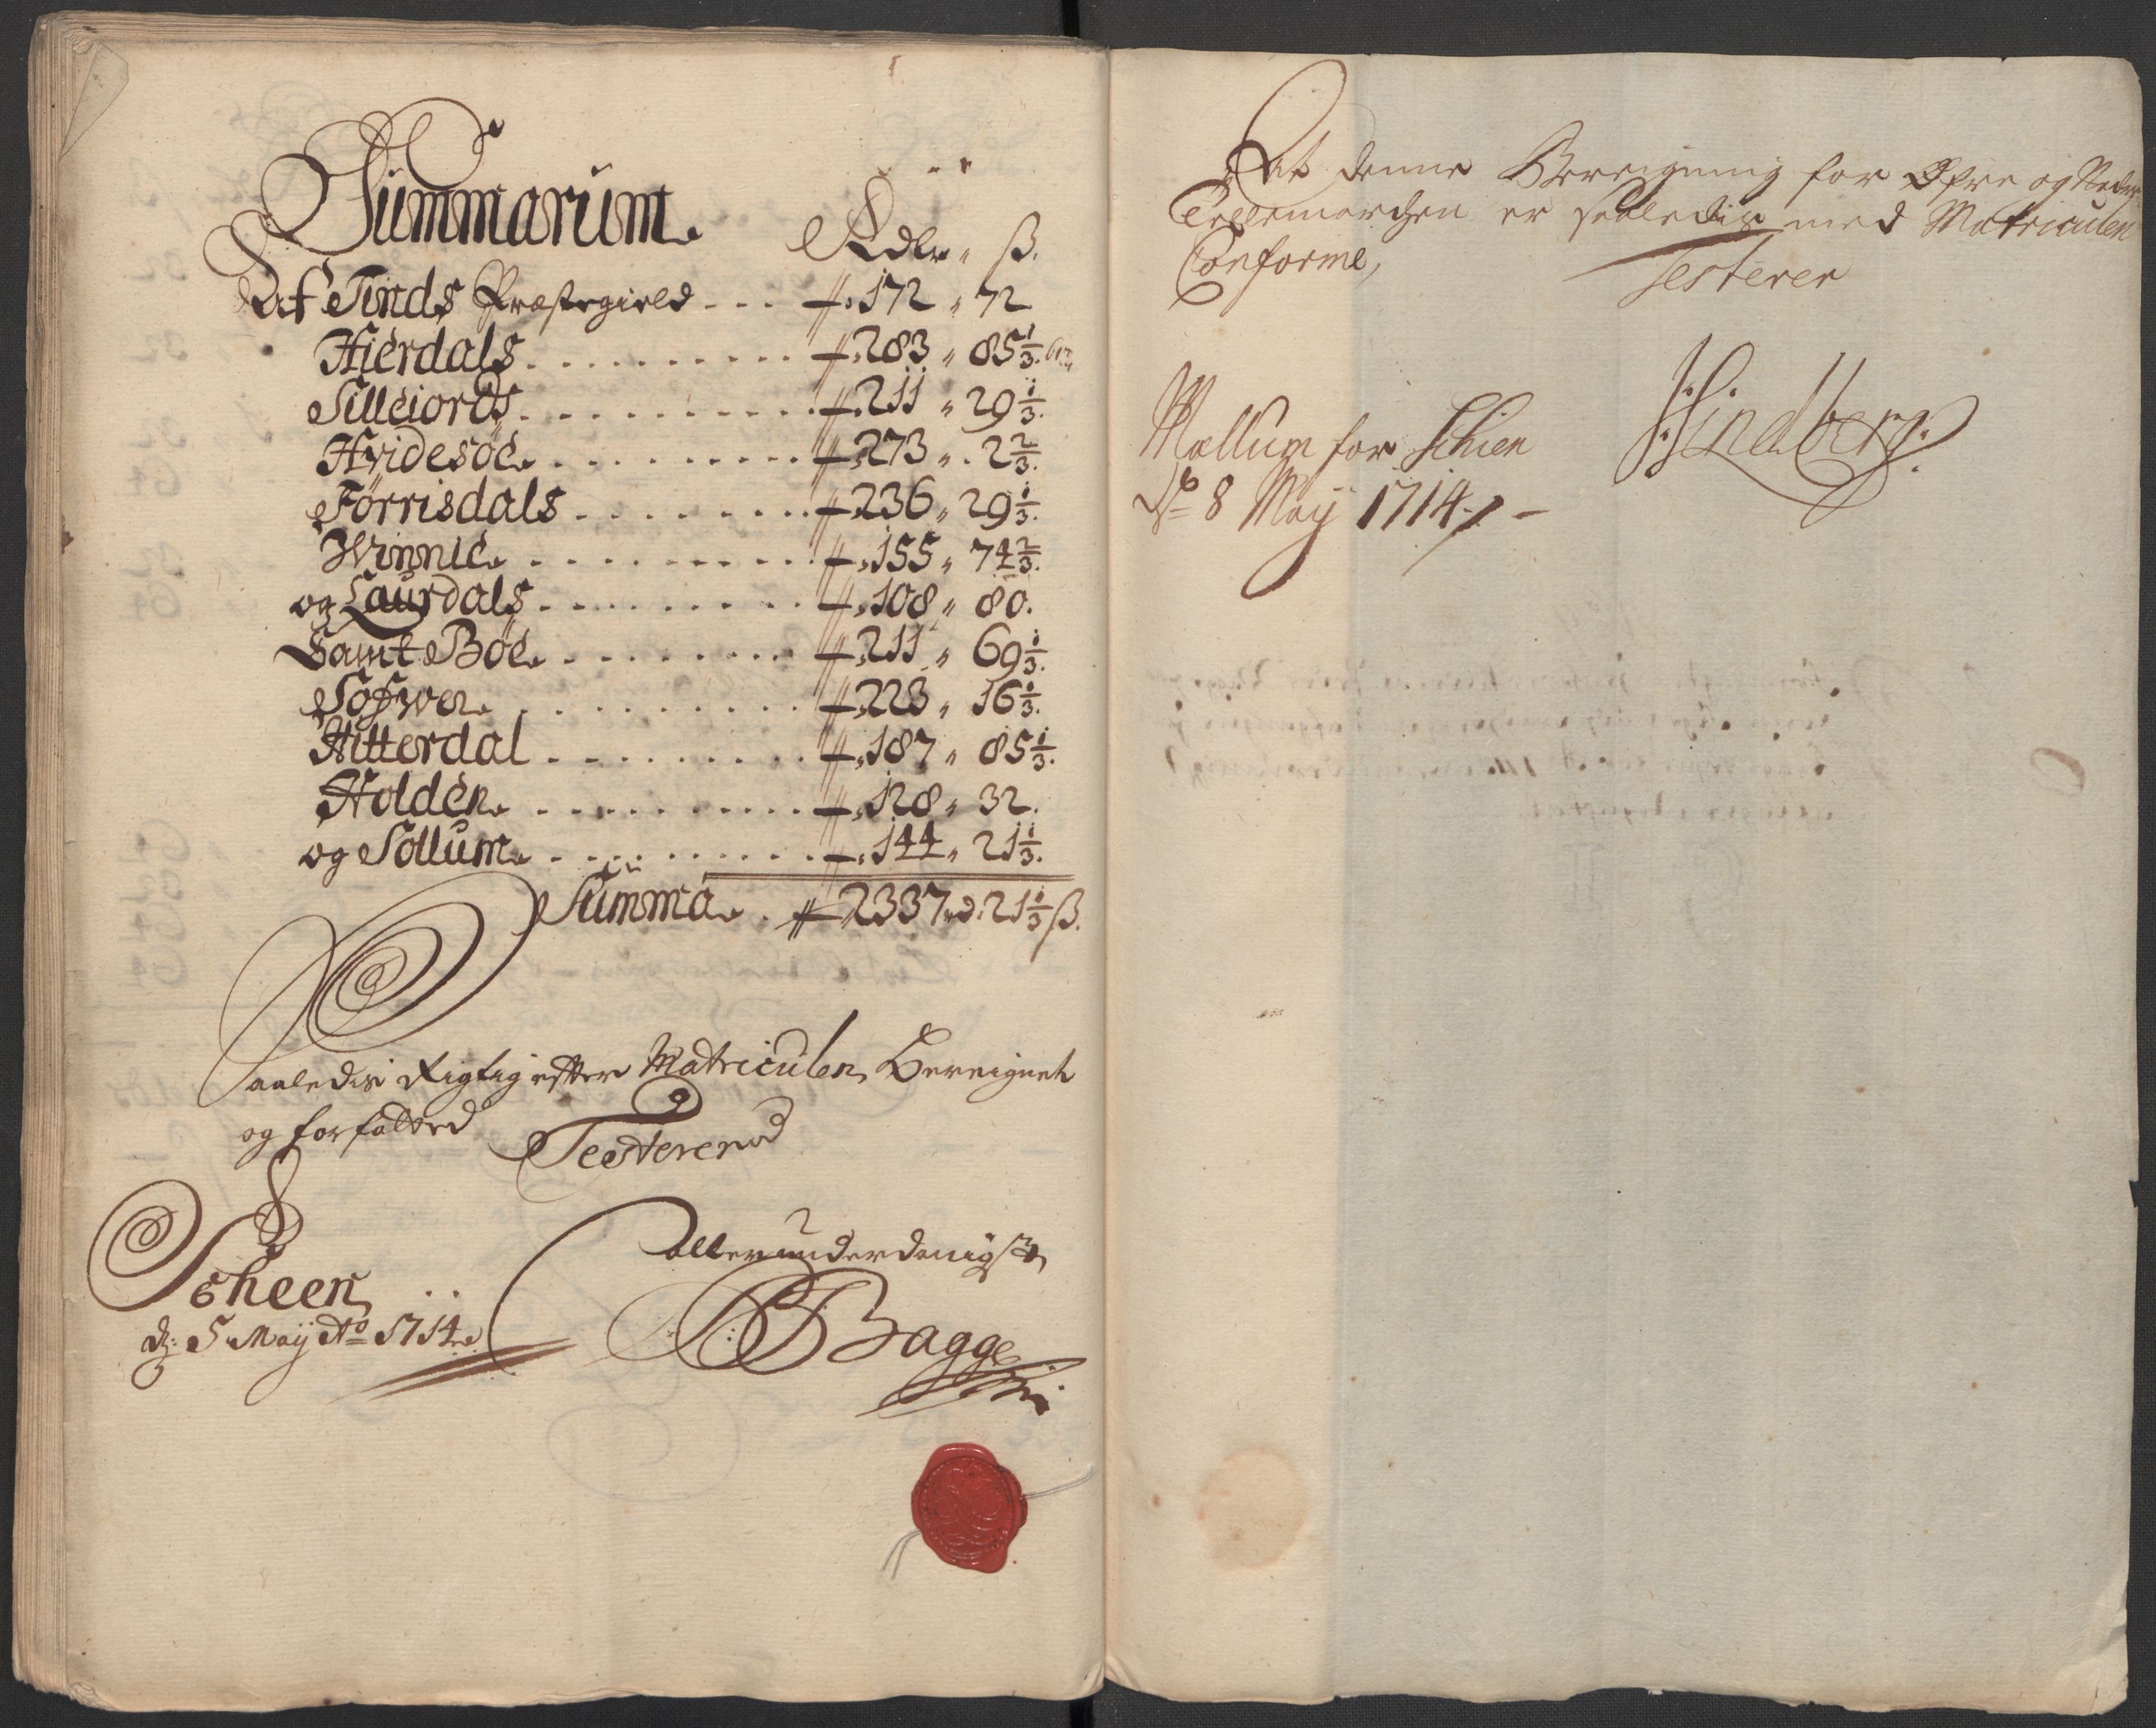 Summarum
Rdlr " ß.
Af Tinds Præstegield - - - 172 " 72
Hierdals . . . . . . . . . . 283 " 85 1/3.
Silleiords . . . . . . . . . . 211 " 29 1/3.
Hvidesöe . . . . . . . . . 273 " . 2 2/3.
Förrisdals . . . . . . . . 236 " 29 1/3.
Winnie . . . . . . . . . . 155 " 74 2/3.
og Laurdals . . . . . . . . . 108 " 80.
Samt Böe . . . . . . . . 211 " 69 1/3.
Sofwen . . . . . . . . . . 223 " 16 1/3.
Hitterdal . . . . . . . . . 187 " 85 1/3.
Holden . . . . . . . . . . 128 " 32.
og Sollum . . . . . . . . . . 144 " 21 1/3.
Summa . 2337 rd. 21 1/3 ß.
Saaledis Rigtig efter Matriculen Bereignet
og forfatted Testerend
Scheen
d: 5 Maij Ao 1714
allerunderdanigst
Bagge
At denne Beregning for Öfre og Nedre
Tellemarchen er saaledis med Matriculen
Conforme,
Testerer
Mællum for Schien
d 8 Maij 1714
Lindberg